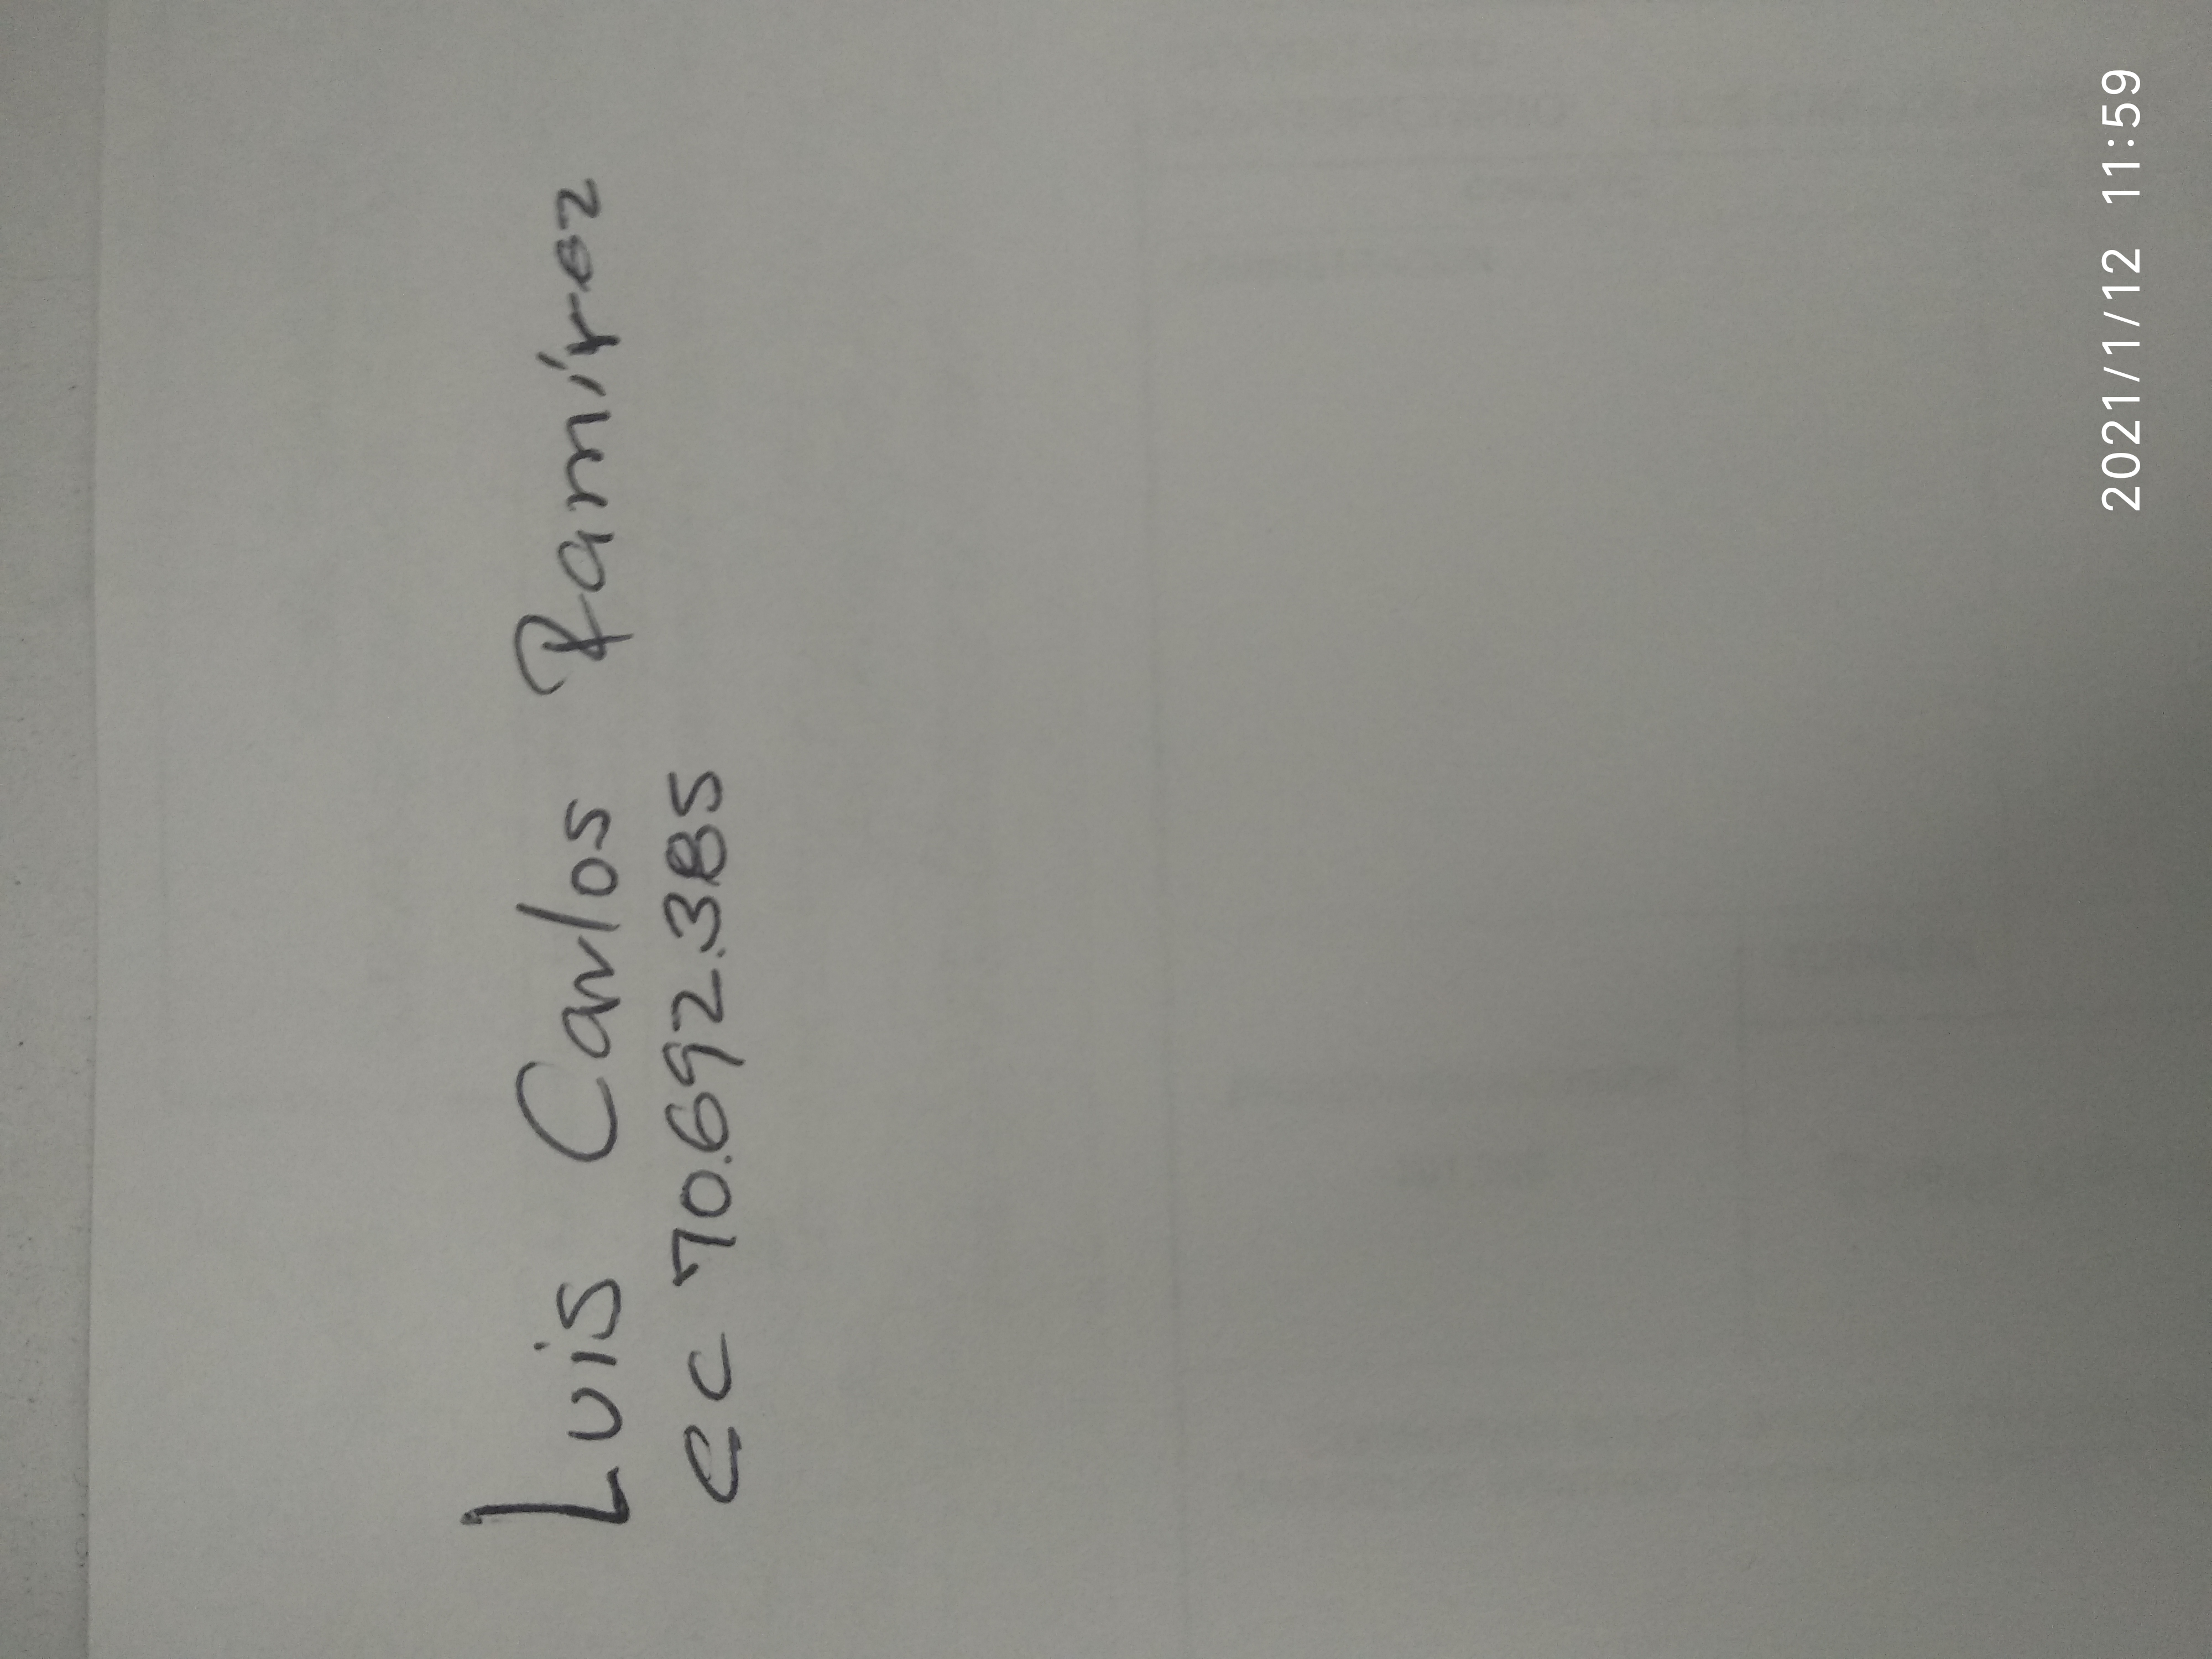 Luis Carlos Ramírez
CC 70.692.385
2021/1/12 11:59